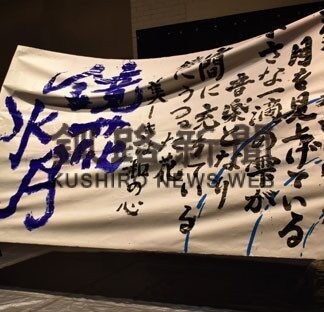 月を見上げている
小さな一滴の雫が
音楽となり
間に充ちている
にうつる花
美しき和の心
鏡花
水月
釧路新聞
KUSHIRO NEWS WEB